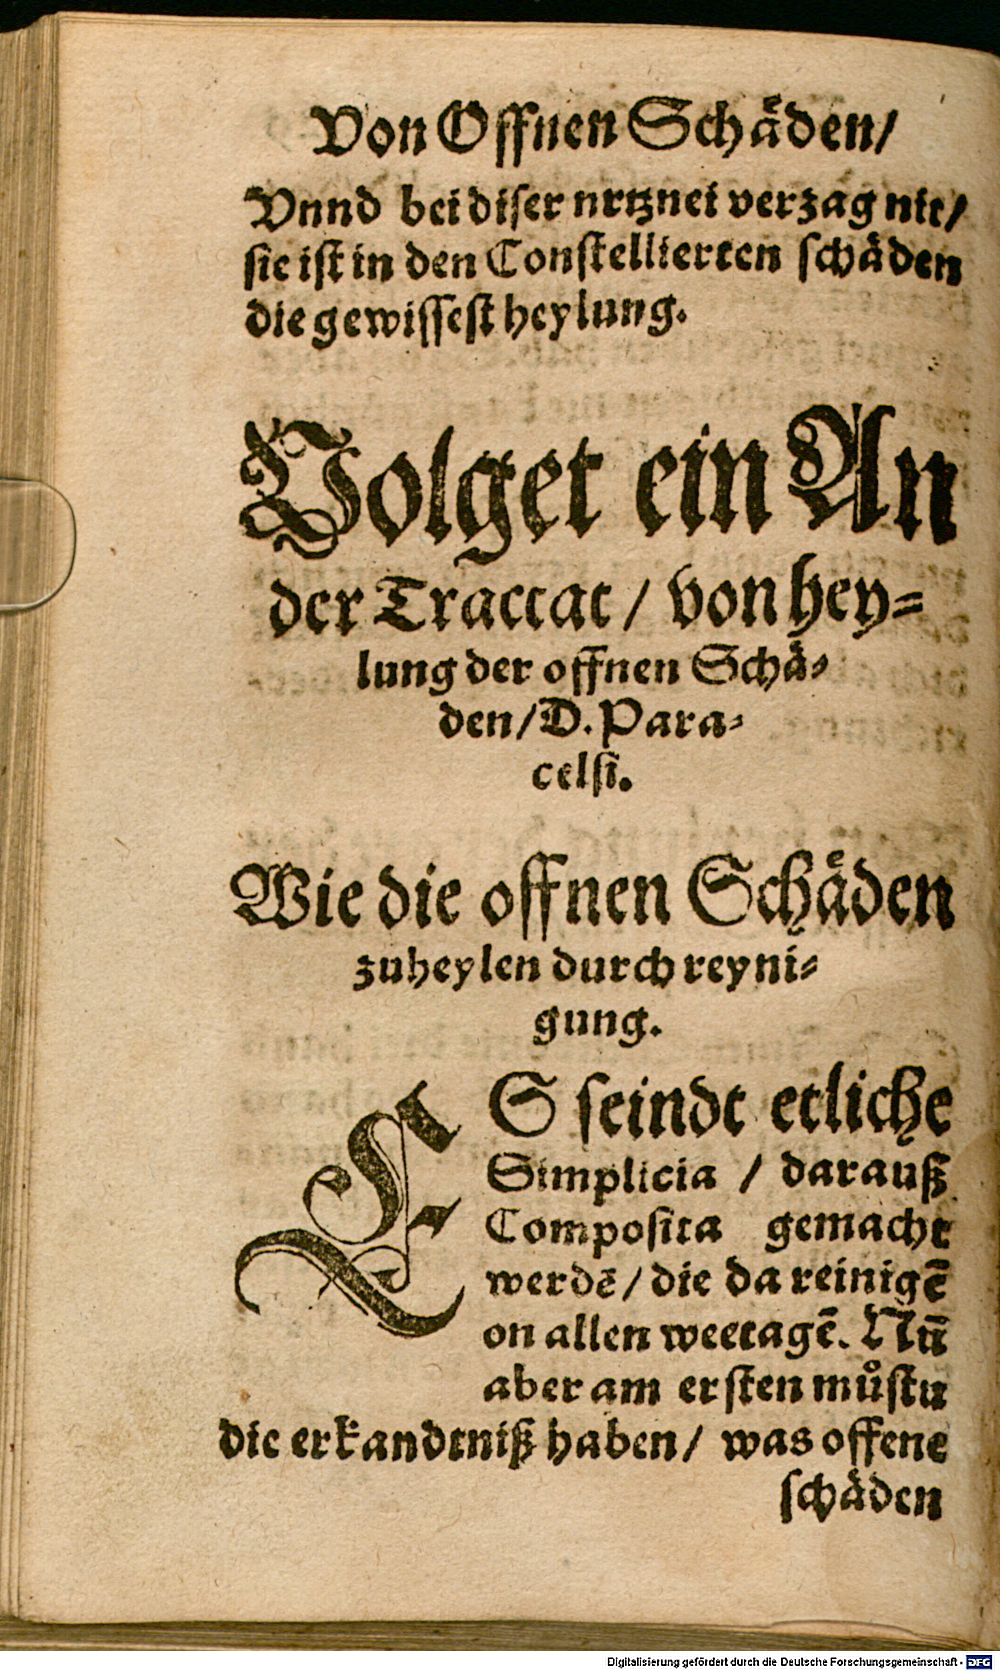 Von Offnen Schåden/
Vnnd bei diser nrtznei verzag nit/
sie ist in den Constellierten schåden
die gewissest heylung.
Volget ein An
der Tractat / von hey=
lung der offnen Schå=
den/ D. Para=
celsi.
Wie die offnen Schåden
zuheylen durch reyni=
gung.
ES seindt etliche
Simplicia / darauß
Composita gemacht
werdē / die da reinigē
on allen weetagē. Nun̄
aber am ersten můstu
die erkandtniß haben/ was offene
schåden
Digitalisierung gefördert durch die Deutsche Forschungsgemeinschaft - DFG